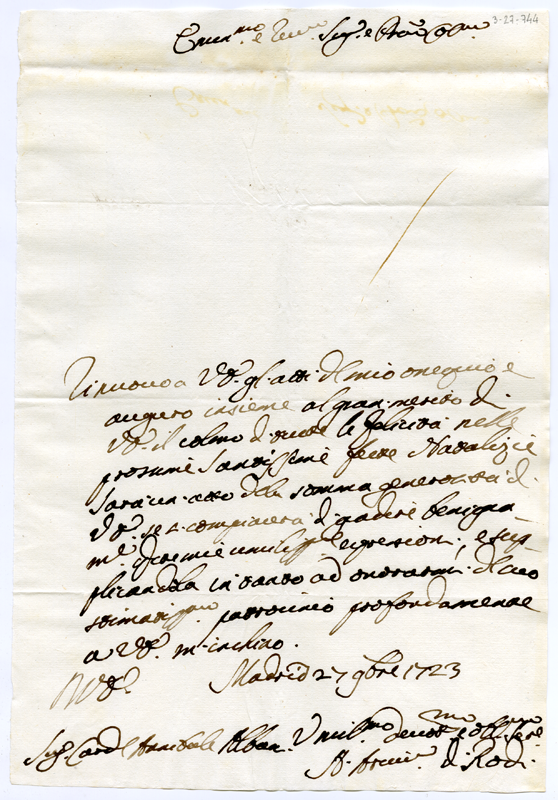 3-27-744
Emin.mo e Rev.mo Sig.r e Pron Col.mo
Rinuovo a V.E. gl'atti del mio ossequio e
auguro insieme al gran merito di
V.E. il colmo di tutte le felicità nelle
prossime Santissime feste Natalizie
Sarà un atto della somma generosità di
V.E. se si compiacerà di gradire benigna
m.te di queste umiliss.me espressioni, e sup-
plicandola intanto ad onorarmi del suo
stimatissimo patrocinio profondamente
a V.E. m'inchino.
V.E. Madrid 27 9bre 1723
Sig.r Card.l Annibale Albani Umil.mo devot.mo e obl. ser.re
A. Arciv.o di Rodi.